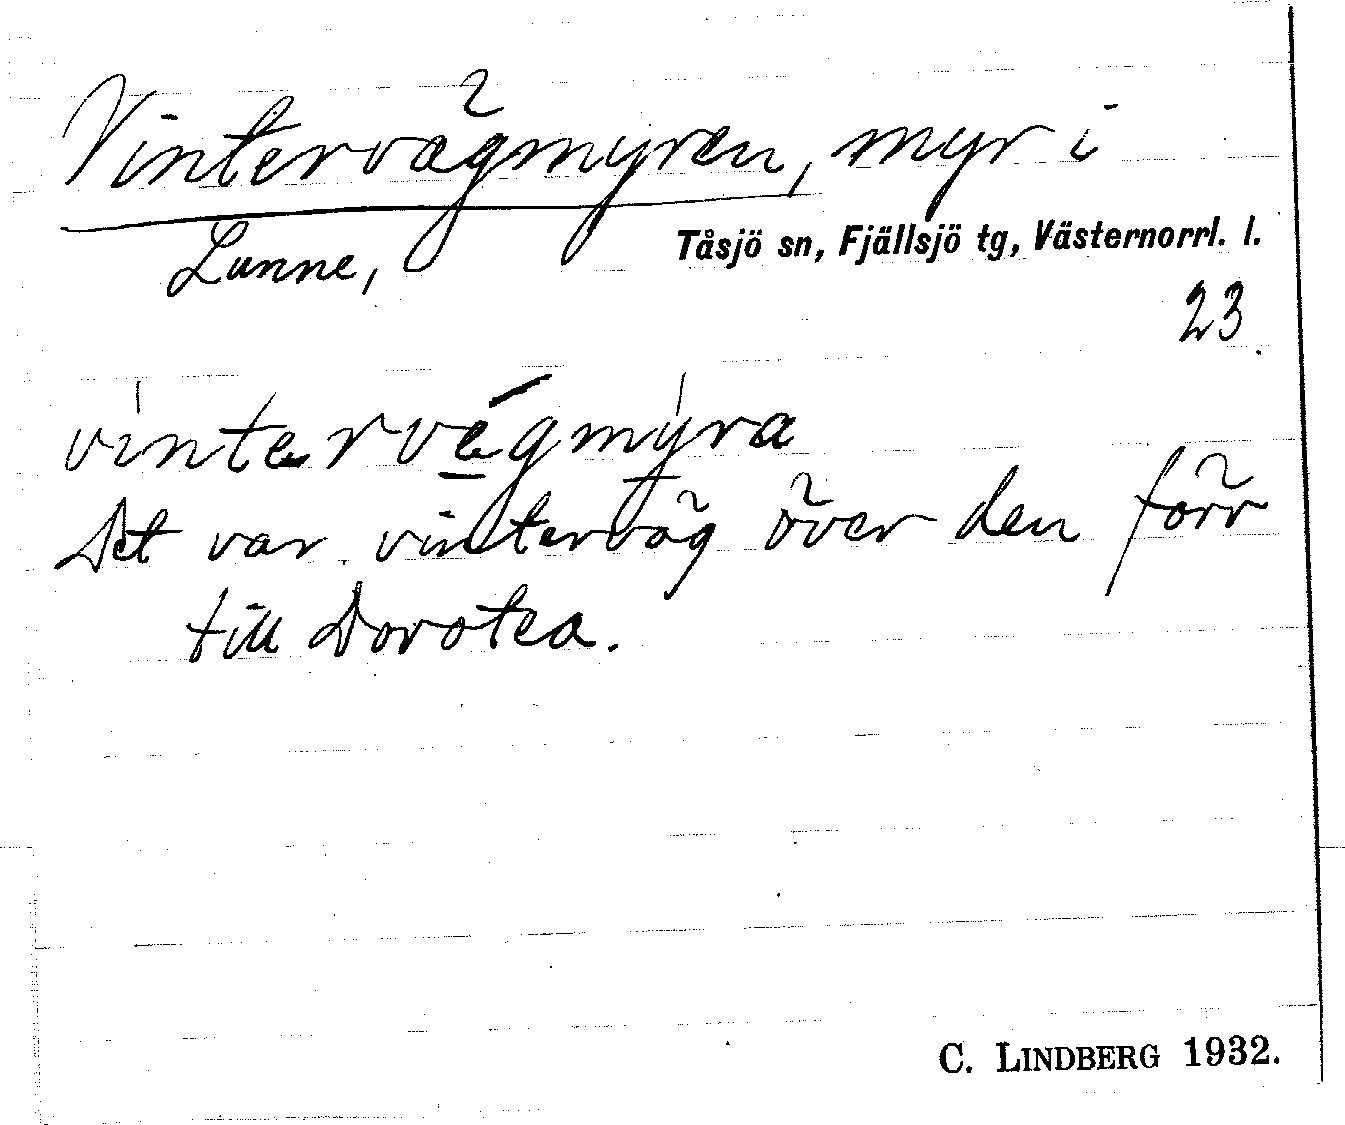 Vintervägmyren, myr i
Lunne, Tåsjö sn, Fjällsjö tg, Västernorrl. l.
23
vintervégmyra
Det var vinterväg över den förr
till Dorotea.
C. LINDBERG 1932.